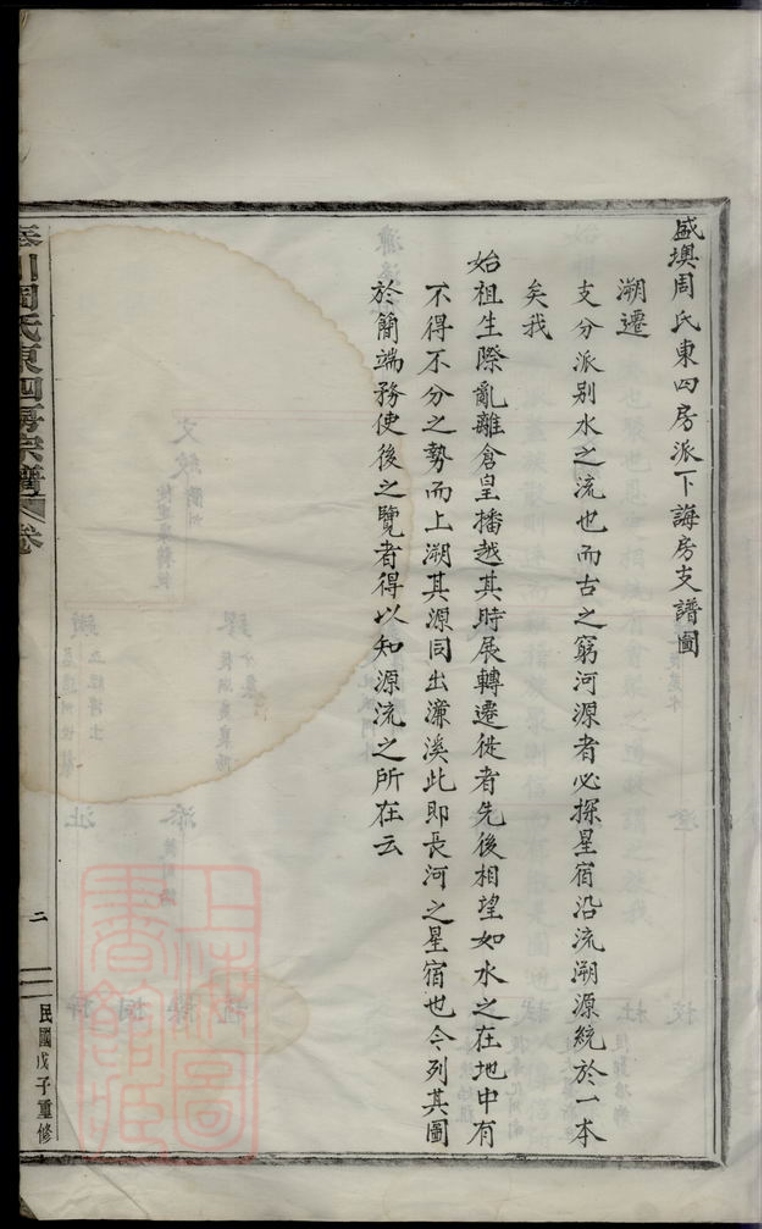 盛墺周氏東四房派下誨房支譜圖
溯遷
支分派别水之流也而古之窮河源者必探星宿沿流溯源統於一本
矣我
始祖生際亂離倉皇播越其時展轉遷徙者先後相望如水之在地中有
不得不分之勢而上溯其源同出濂溪此即長河之星宿也今列其圖
於簡端務使後之覽者得以知源流之所在云
川周氏東四房宗譜 卷
二
民國戊子重修
上海圖書館藏